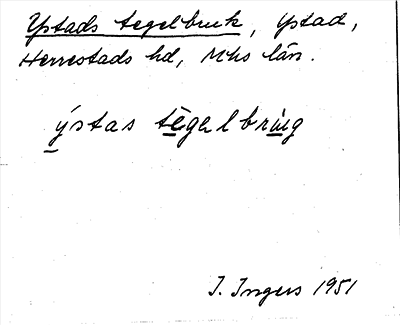 Ystads tegelbruk, Ystad,
Herrestads hd, Mhs län.
ýstas tègelbrúg
I. Ingers 1951